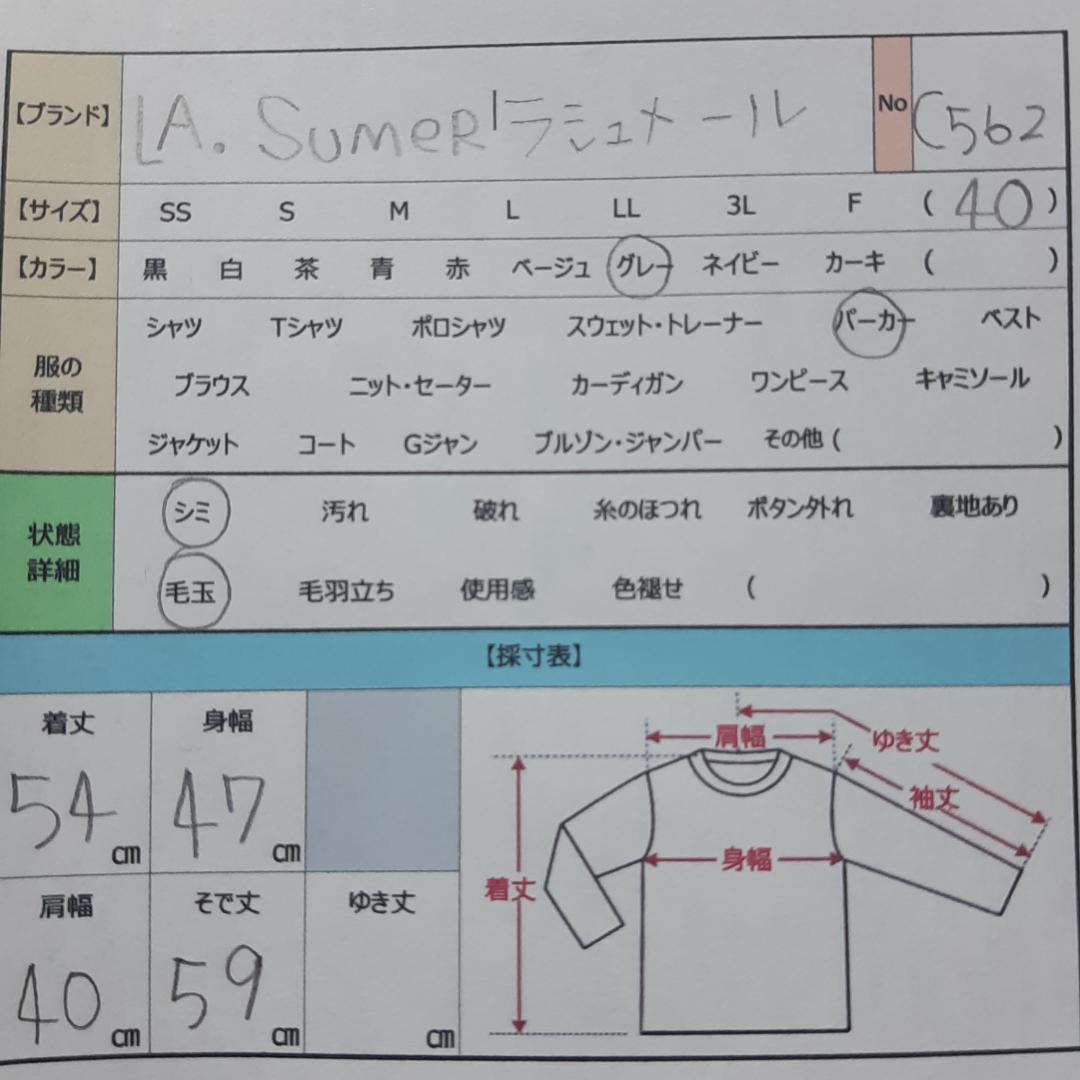 【ブランド】 LA. SUMER ラシュメール No C562
【サイズ】 SS S M L LL 3L F ( 40 )
【カラー】 黒 白 茶 青 赤 ベージュ グレー ネイビー カーキ ( )
服の種類
シャツ Tシャツ ポロシャツ スウェット・トレーナー パーカー ベスト
ブラウス ニット・セーター カーディガン ワンピース キャミソール
ジャケット コート Gジャン ブルゾン・ジャンパー その他 ( )
状態詳細
シミ 汚れ 破れ 糸のほつれ ボタン外れ 裏地あり
毛玉 毛羽立ち 使用感 色褪せ ( )
【採寸表】
着丈 身幅
54cm 47cm
肩幅 そで丈 ゆき丈
40cm 59cm cm
肩幅 ゆき丈
袖丈
身幅
着丈